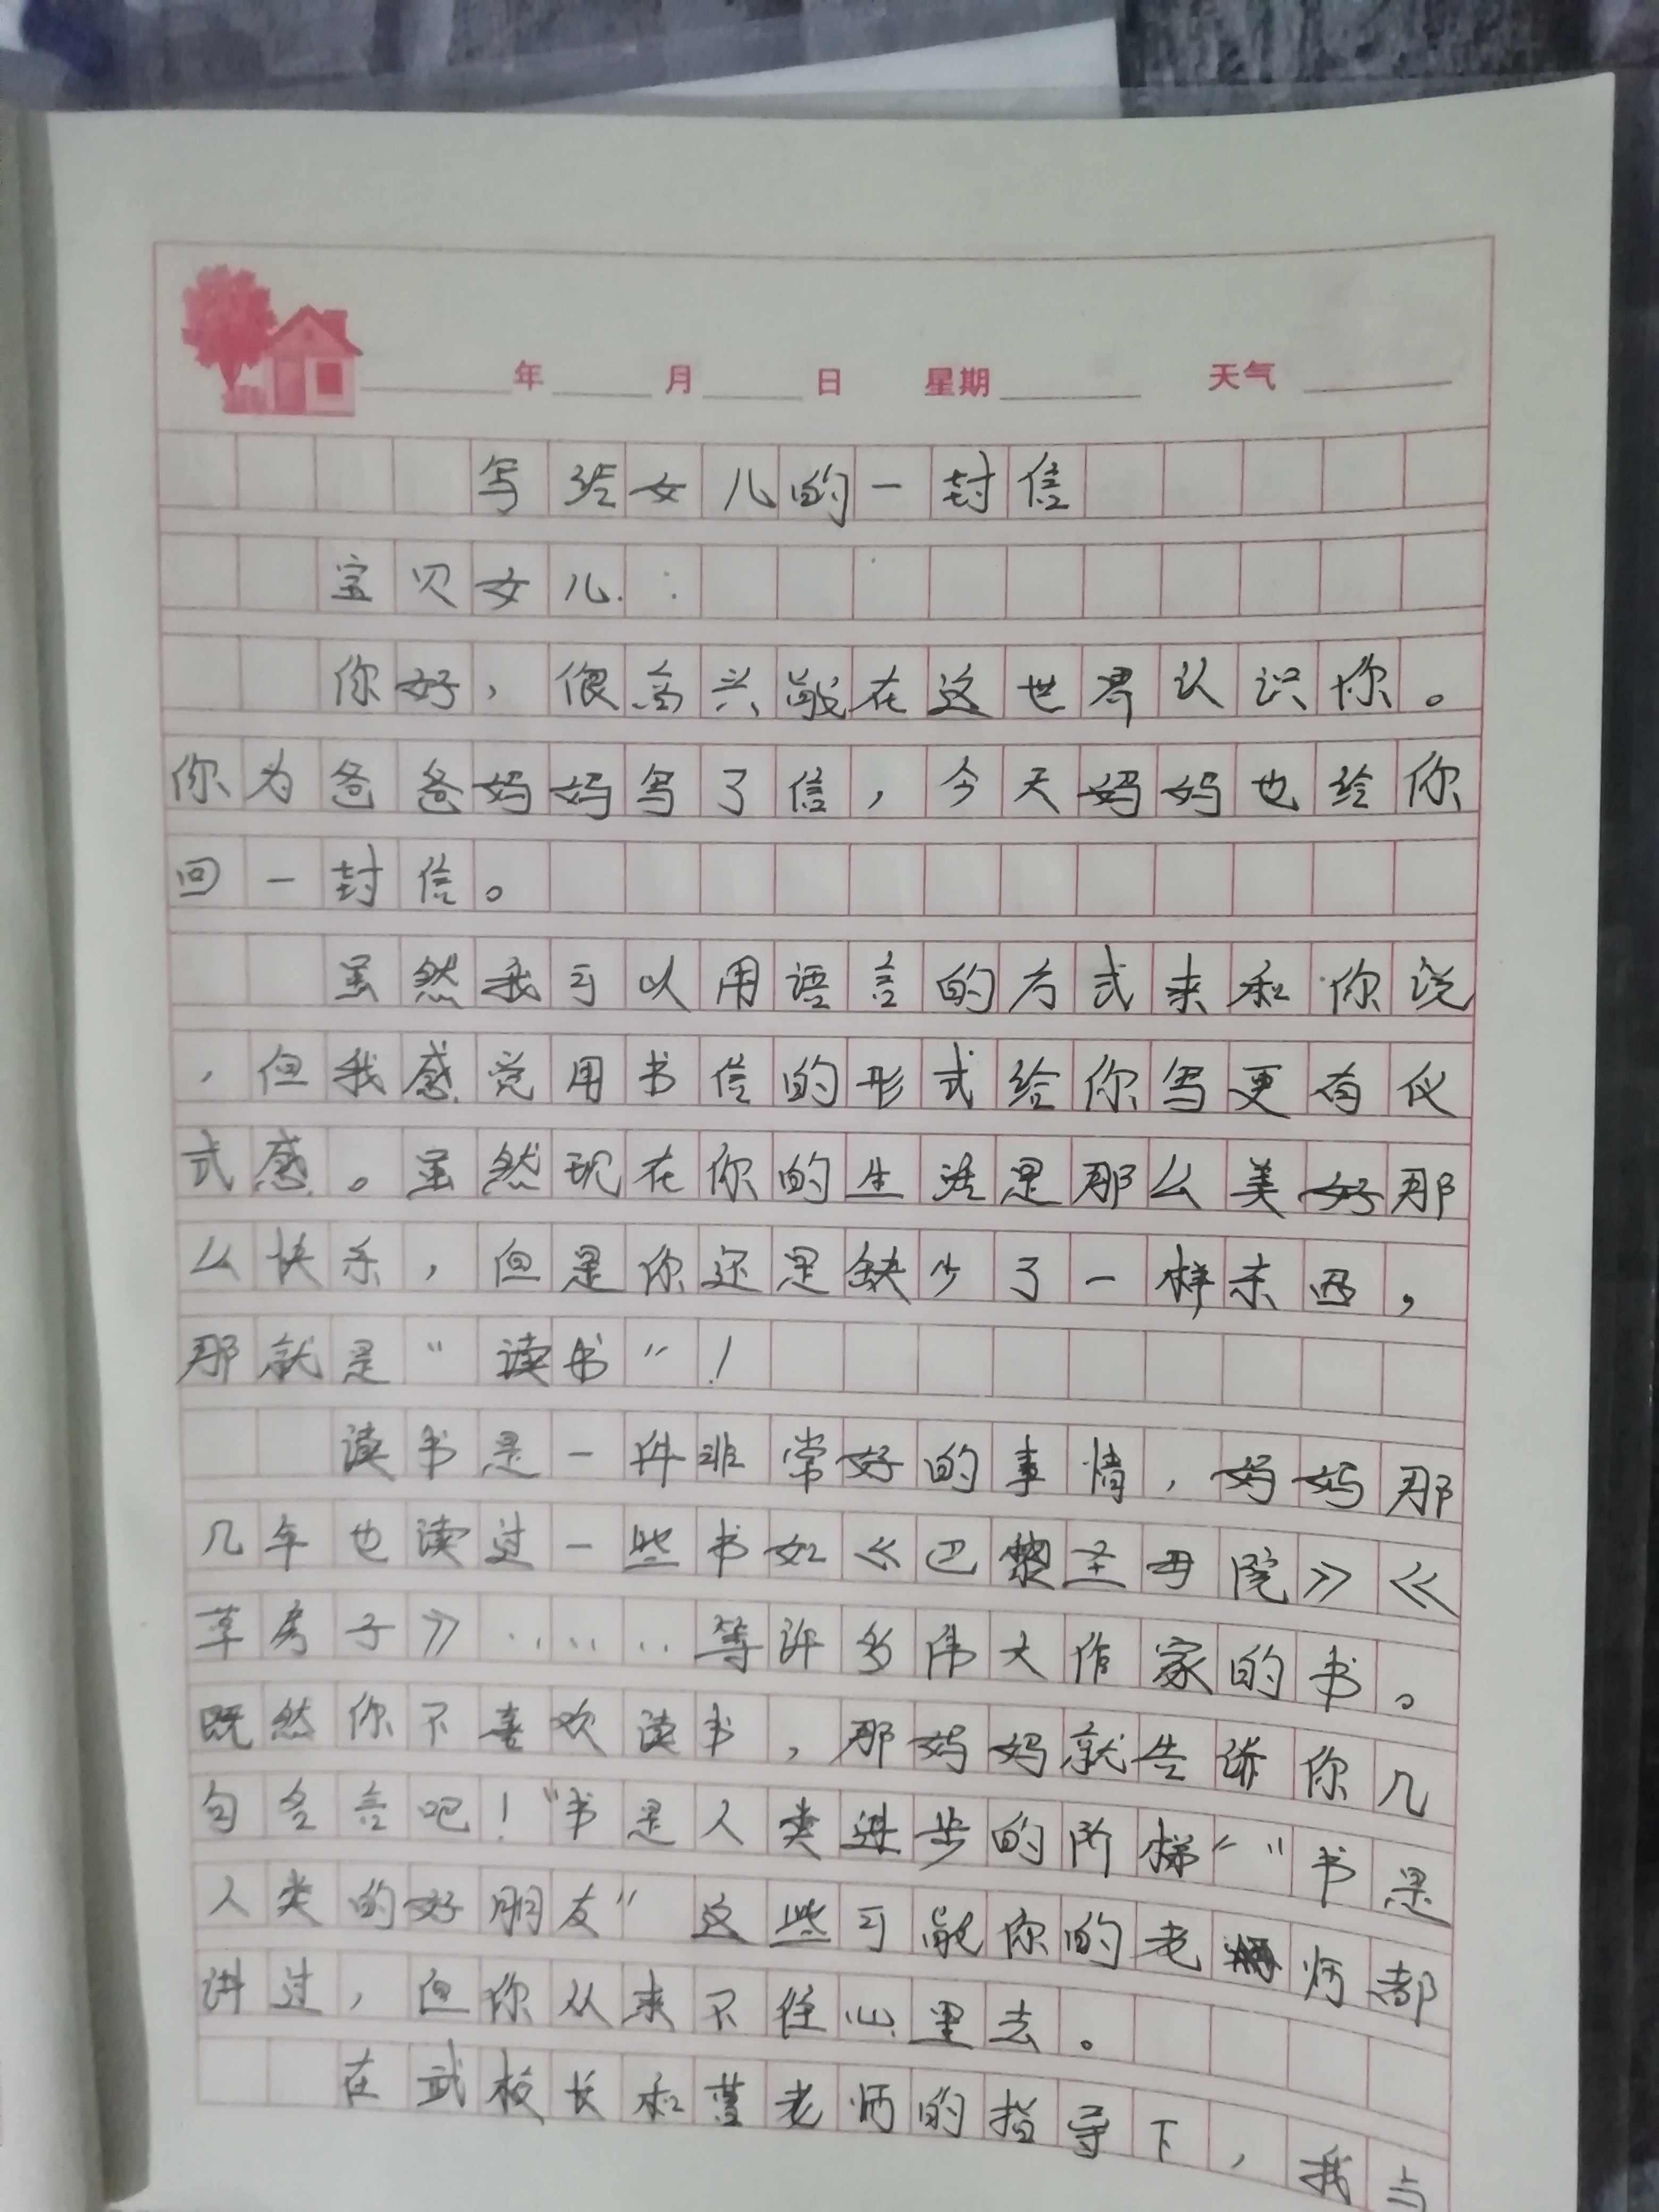 年 月 日 星期 天气
写给女儿的一封信
宝贝女儿：
你好，很高兴能在这世界认识你。
你为爸爸妈妈写了信，今天妈妈也给你
回一封信。
虽然我可以用语言的方式来和你说
，但我感觉用书信的形式给你写更有仪
式感。虽然现在你的生活是那么美好那
么快乐，但是你还是缺少了一样东西，
那就是“读书”！
读书是一件非常好的事情，妈妈那
几年也读过一些书如《巴黎圣母院》《
草房子》……等许多伟大作家的书。
既然你不喜欢读书，那妈妈就告诉你几
句名言吧！“书是人类进步的阶梯”“书是
人类的好朋友”这些可能你的老师都
讲过，但你从来不往心里去。
在武校长和董老师的指导下，我与